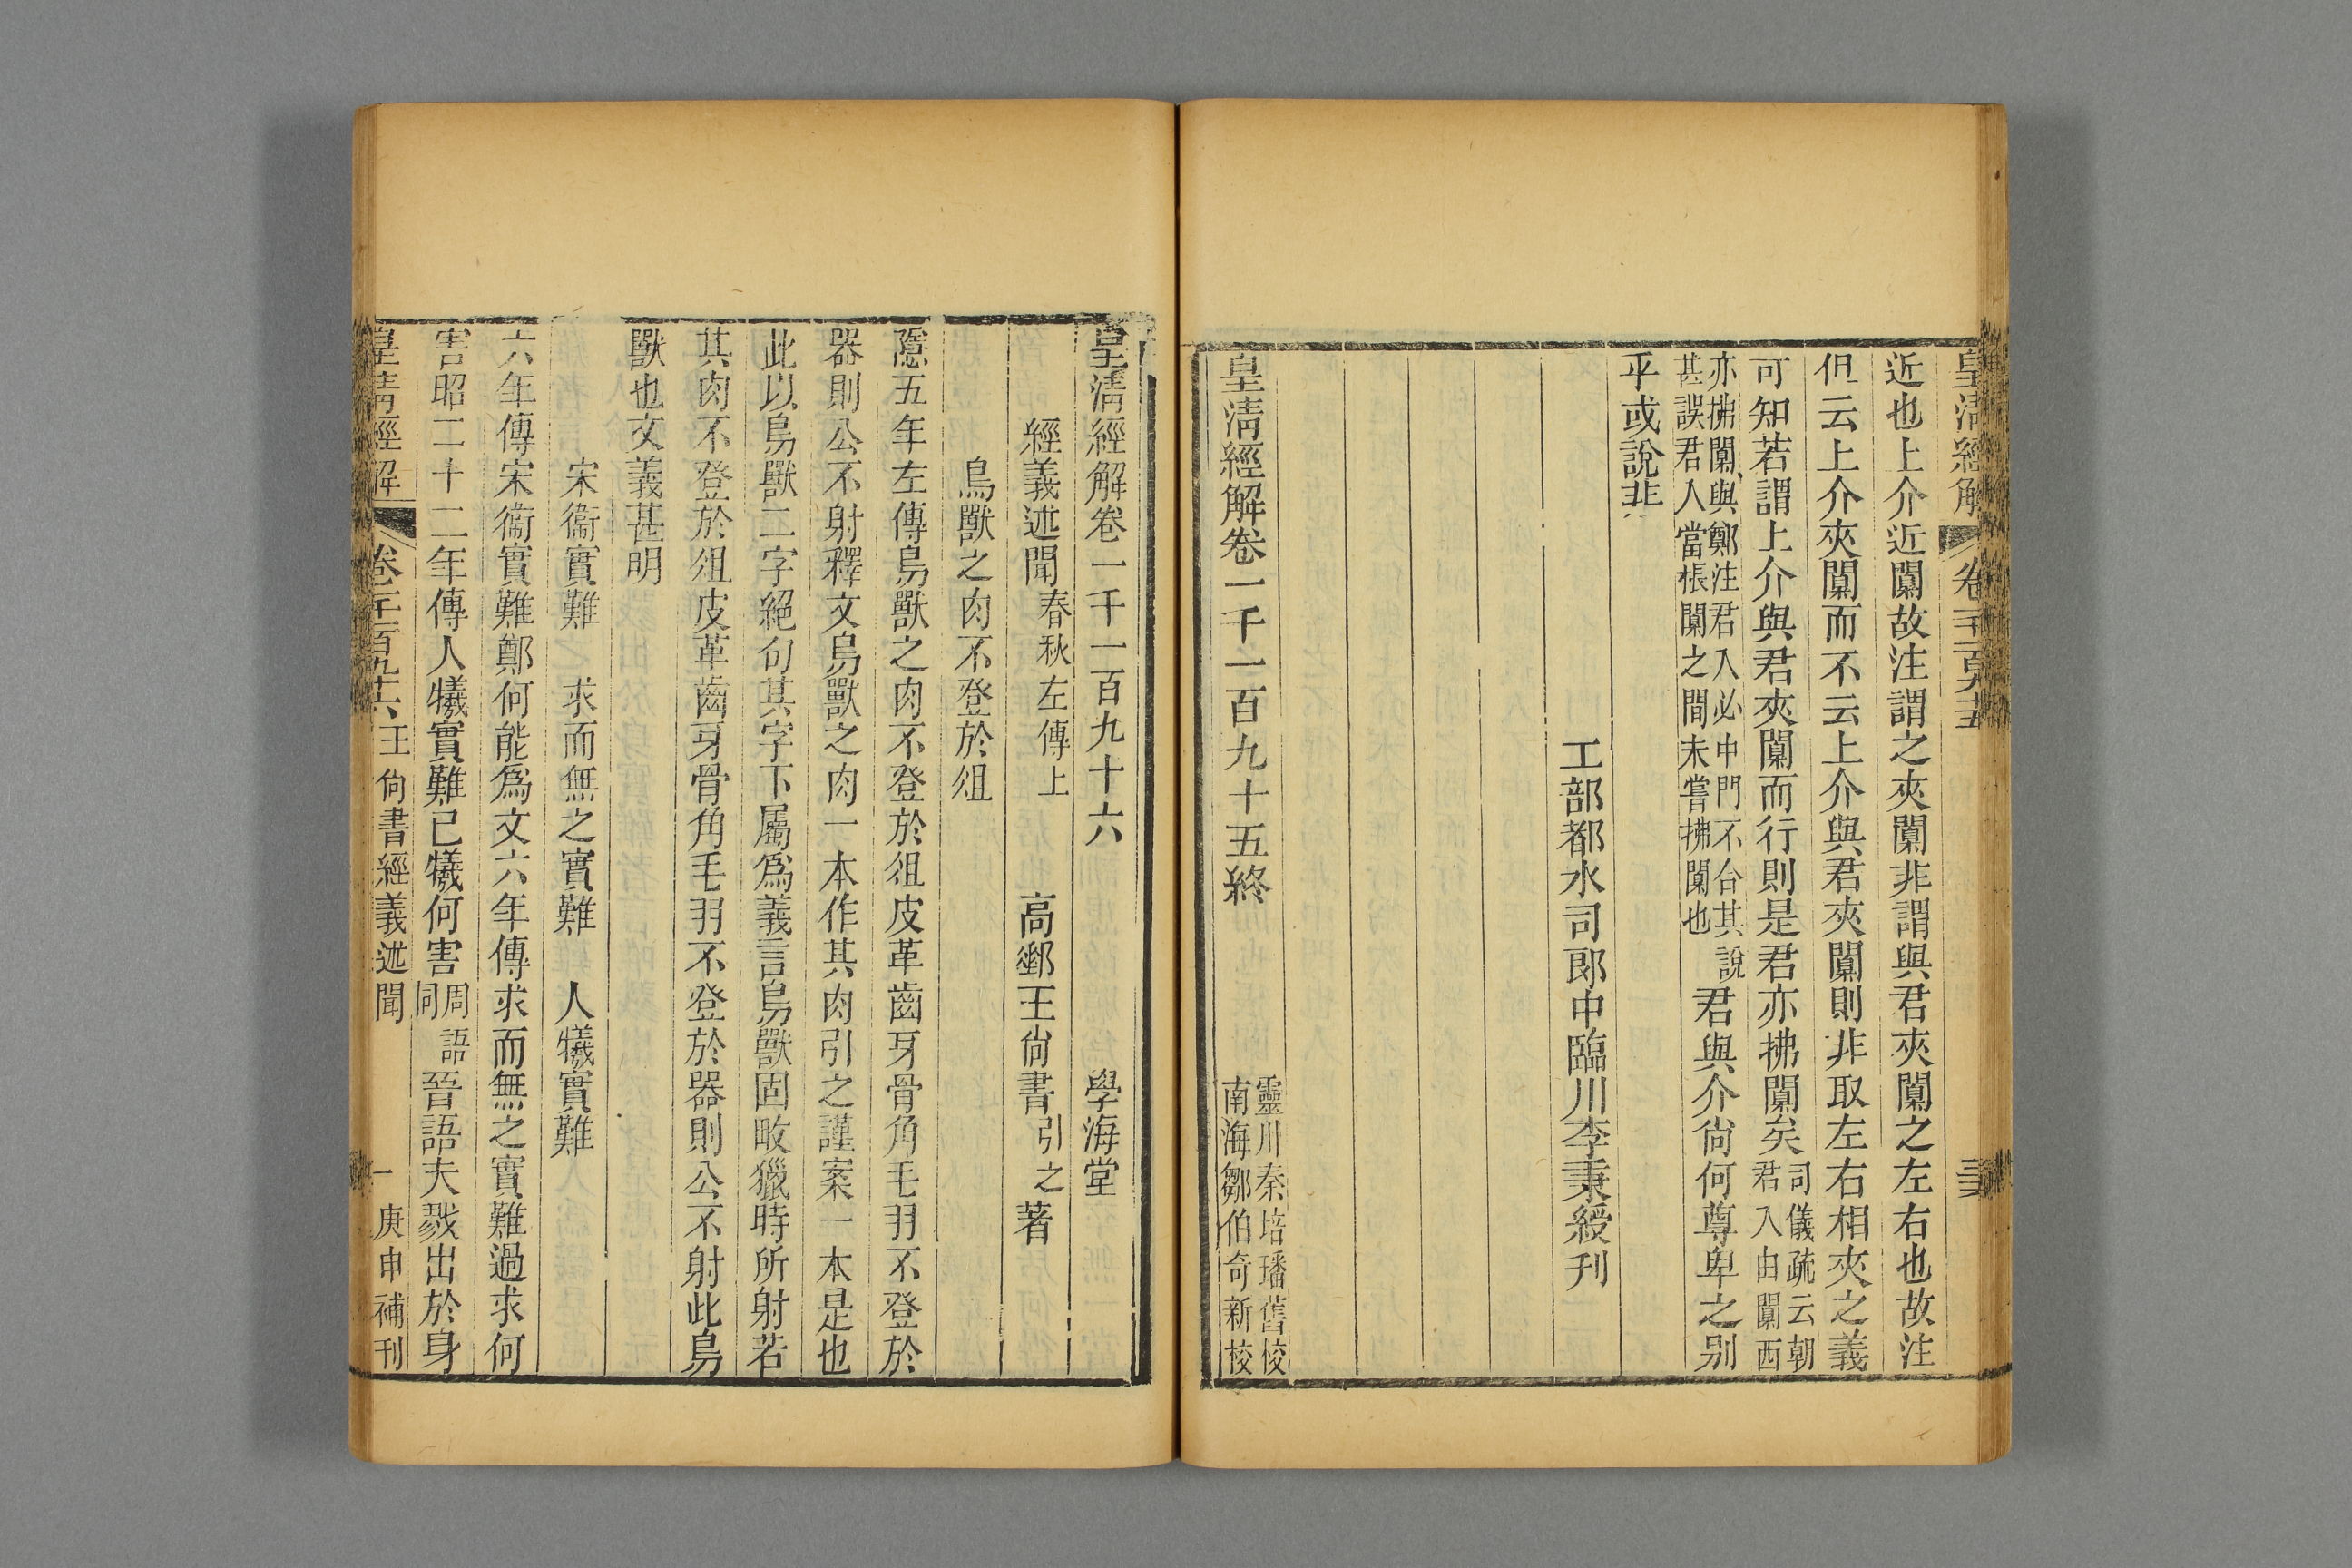 皇清經解 卷一千一百九十五 三
近也上介近闑故注謂之夾闑非謂與君夾闑之左右也故注
但云上介夾闑而不云上介與君夾闑則非取左右相夾之義
可知若謂上介與君夾闑而行則是君亦拂闑矣司儀疏云朝君入由闑西
亦拂闑與鄭注君入必中門不合其說甚誤君入當棖闑之間未嘗拂闑也君與介尙何尊卑之别
乎或說非
工部都水司郞中臨川李秉綬刋
皇淸經解卷一千一百九十五終
靈川秦培璠舊校
南海鄒伯奇新校
皇淸經解卷一千一百九十六 學海堂
經義述聞春秋左傳上 高郵王尙書引之著
鳥獸之肉不登於俎
隱五年左傳鳥獸之肉不登於俎皮革齒牙骨角毛羽不登於
器則公不射釋文鳥獸之肉一本作其肉引之謹案一本是也
此以鳥獸二字絕句其字下屬爲義言鳥獸固畋獵時所射若
其肉不登於俎皮革齒牙骨角毛羽不登於器則公不射此鳥
獸也文義甚明
宋衞實難 求而無之實難 人犧實難
六年傳宋衞實難鄭何能爲文六年傳求而無之實難過求何
害昭二十二年傳人犧實難已犧何害周語同晉語夫戮出於身
皇淸經解 卷一千一百九十六 王尙書經義述聞 一 庚申補刊